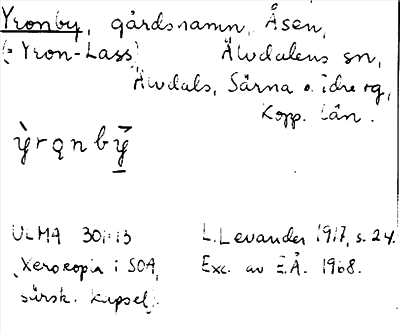 Yronby, gårdsnamn, Åsen,
(= Yron-Lass) Älvdalens sn,
Älvdals, Särna o. Idre tg,
Kopp. län.
ỳrǫnbȳ
ULMA L. Levander 1917, s. 24.
Xerokopia i SOA, Exc. av E.Å. 1968.
särsk. kapsel.